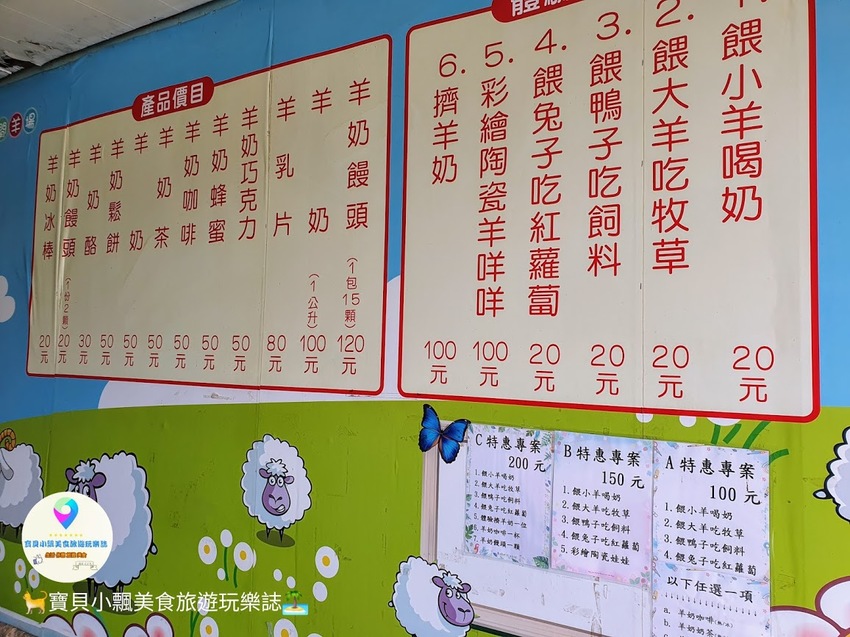 產品價目
羊奶冰棒 20元
羊奶饅頭(1份2顆) 20元
羊奶酪 30元
羊奶鬆餅 50元
羊奶 50元
羊奶茶 50元
羊奶咖啡 50元
羊奶蜂蜜 50元
羊奶巧克力 50元
羊乳片 80元
羊奶(1公升) 100元
羊奶饅頭(1包15顆) 120元
餵小羊喝奶 20元
2.餵大羊吃牧草 20元
3.餵鴨子吃飼料 20元
4.餵兔子吃紅蘿蔔 20元
5.彩繪陶瓷羊咩咩 100元
6.擠羊奶 100元
C特惠專案
200元
1.餵小羊喝奶
2.餵大羊吃牧草
3.餵鴨子吃飼料
4.餵兔子吃紅蘿蔔
5.體驗擠羊奶一位
6.羊奶咖啡一杯
7.羊奶饅頭一顆
B特惠專案
150元
1.餵小羊喝奶
2.餵大羊吃牧草
3.餵鴨子吃飼料
4.餵兔子吃紅蘿蔔
5.彩繪陶瓷娃娃
A特惠專案
100元
1.餵小羊喝奶
2.餵大羊吃牧草
3.餵鴨子吃飼料
4.餵兔子吃紅蘿蔔
以下任選一項
a.羊奶咖啡
b.羊奶奶茶
寶貝小飄美食旅遊玩樂誌
寶貝小飄美食旅遊玩樂誌